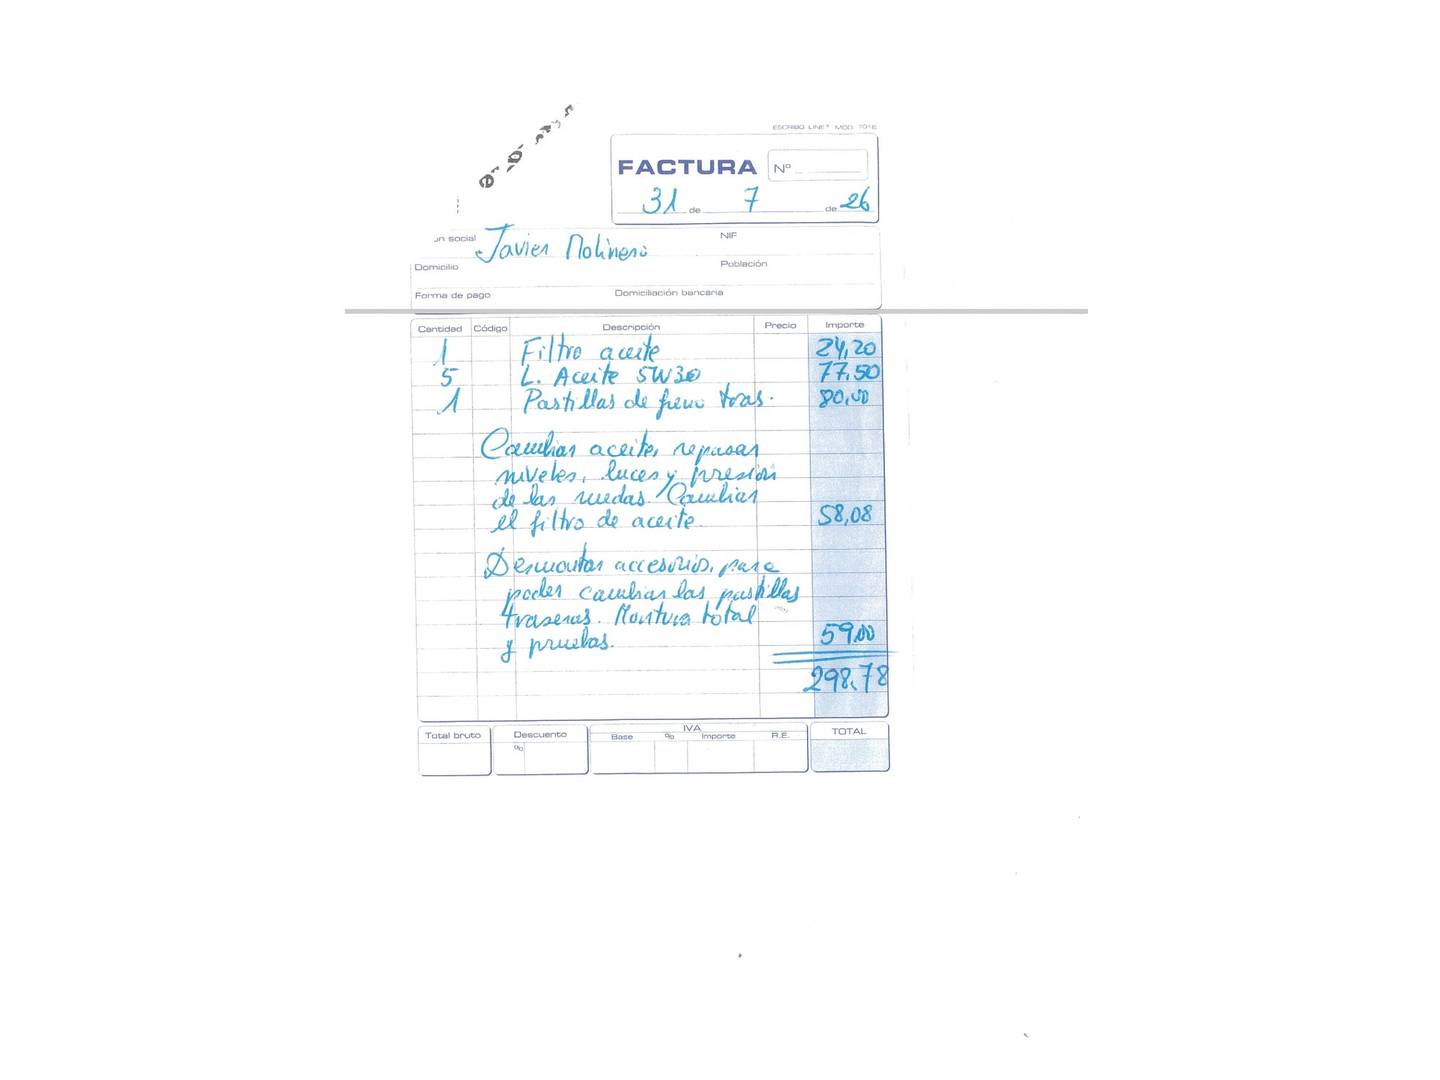 ESCRIBO LINE® MOD. 7016
FACTURA Nº
31 de 7 de 26
ón social Javier Molinero NIF
Domicilio Población
Forma de pago Domiciliación bancaria
Cantidad Código Descripción Precio Importe
1 Filtro aceite 24,20
5 L. Aceite 5W30 77,50
1 Pastillas de freno tras. 80,00
Cambiar aceite, repasar
niveles, luces y presión
de las ruedas. Cambiar
el filtro de aceite. 58,08
Desmontar accesorios, para
poder cambiar las pastillas
traseras. Montura total
y pruebas. 59,00
298,78
Total bruto Descuento IVA TOTAL
% Base % Importe R.E.